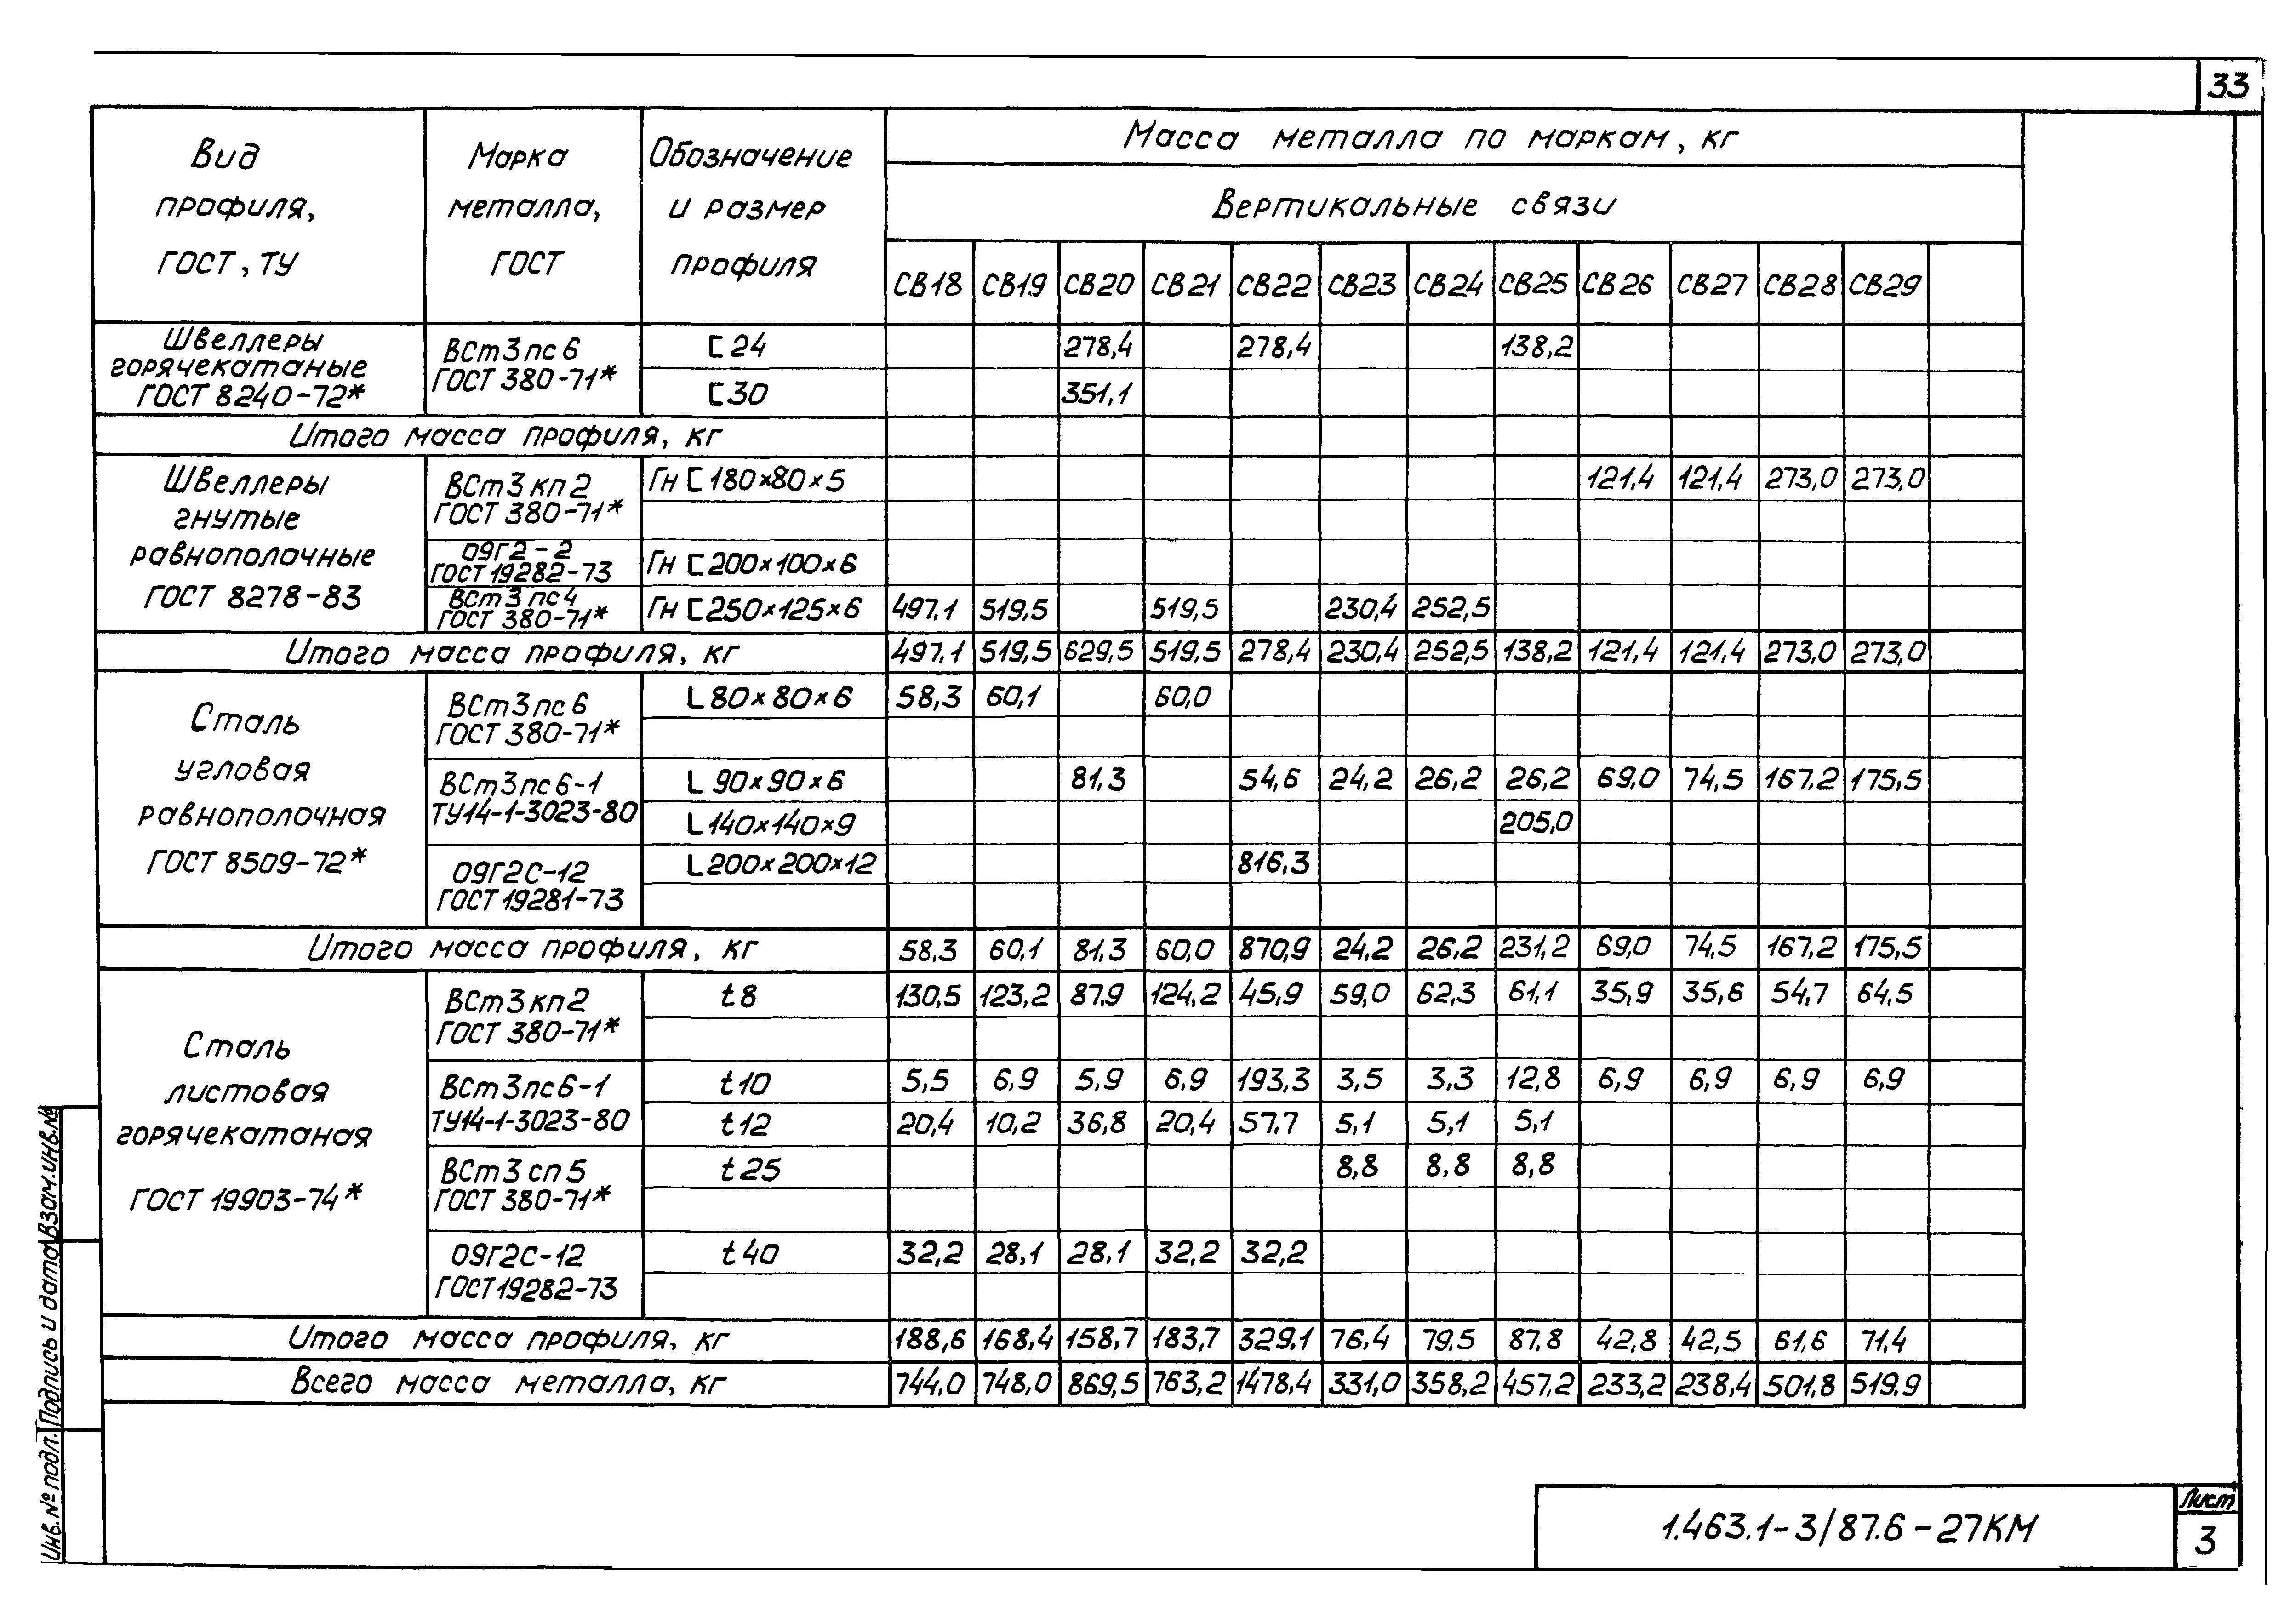 33
Вид профиля, ГОСТ, ТУ
Марка металла, ГОСТ
Обозначение и размер профиля
Масса металла по маркам, кг
Вертикальные связи
СВ18 СВ19 СВ20 СВ21 СВ22 СВ23 СВ24 СВ25 СВ26 СВ27 СВ28 СВ29
Швеллеры горячекатаные ГОСТ 8240-72*
ВСт3пс6 ГОСТ 380-71*
[24 278,4 278,4 138,2
[30 351,1
Итого масса профиля, кг
Швеллеры гнутые равнополочные ГОСТ 8278-83
ВСт3кп2 ГОСТ 380-71*
Гн [180×80×5 121,4 121,4 273,0 273,0
09Г2-2 ГОСТ 19282-73
Гн [200×100×6
ВСт3пс4 ГОСТ 380-71*
Гн [250×125×6 497,1 519,5 519,5 230,4 252,5
Итого масса профиля, кг 497,1 519,5 629,5 519,5 278,4 230,4 252,5 138,2 121,4 121,4 273,0 273,0
Сталь угловая равнополочная ГОСТ 8509-72*
ВСт3пс6 ГОСТ 380-71*
L80×80×6 58,3 60,1 60,0
ВСт3пс6-1 ТУ14-1-3023-80
L90×90×6 81,3 54,6 24,2 26,2 26,2 69,0 74,5 167,2 175,5
L140×140×9 205,0
09Г2С-12 ГОСТ 19281-73
L200×200×12 816,3
Итого масса профиля, кг 58,3 60,1 81,3 60,0 870,9 24,2 26,2 231,2 69,0 74,5 167,2 175,5
Сталь листовая горячекатаная ГОСТ 19903-74*
ВСт3кп2 ГОСТ 380-71*
t8 130,5 123,2 87,9 124,2 45,9 59,0 62,3 61,1 35,9 35,6 54,7 64,5
ВСт3пс6-1 ТУ14-1-3023-80
t10 5,5 6,9 5,9 6,9 193,3 3,5 3,3 12,8 6,9 6,9 6,9 6,9
t12 20,4 10,2 36,8 20,4 57,7 5,1 5,1 5,1
ВСт3сп5 ГОСТ 380-71*
t25 8,8 8,8 8,8
09Г2С-12 ГОСТ 19282-73
t40 32,2 28,1 28,1 32,2 32,2
Итого масса профиля, кг 188,6 168,4 158,7 183,7 329,1 76,4 79,5 87,8 42,8 42,5 61,6 71,4
Всего масса металла, кг 744,0 748,0 869,5 763,2 1478,4 331,0 358,2 457,2 233,2 238,4 501,8 519,9
Инв.№ подл. Подпись и дата Взам.инв.№
1.463.1-3/87.6-27КМ
Лист
3